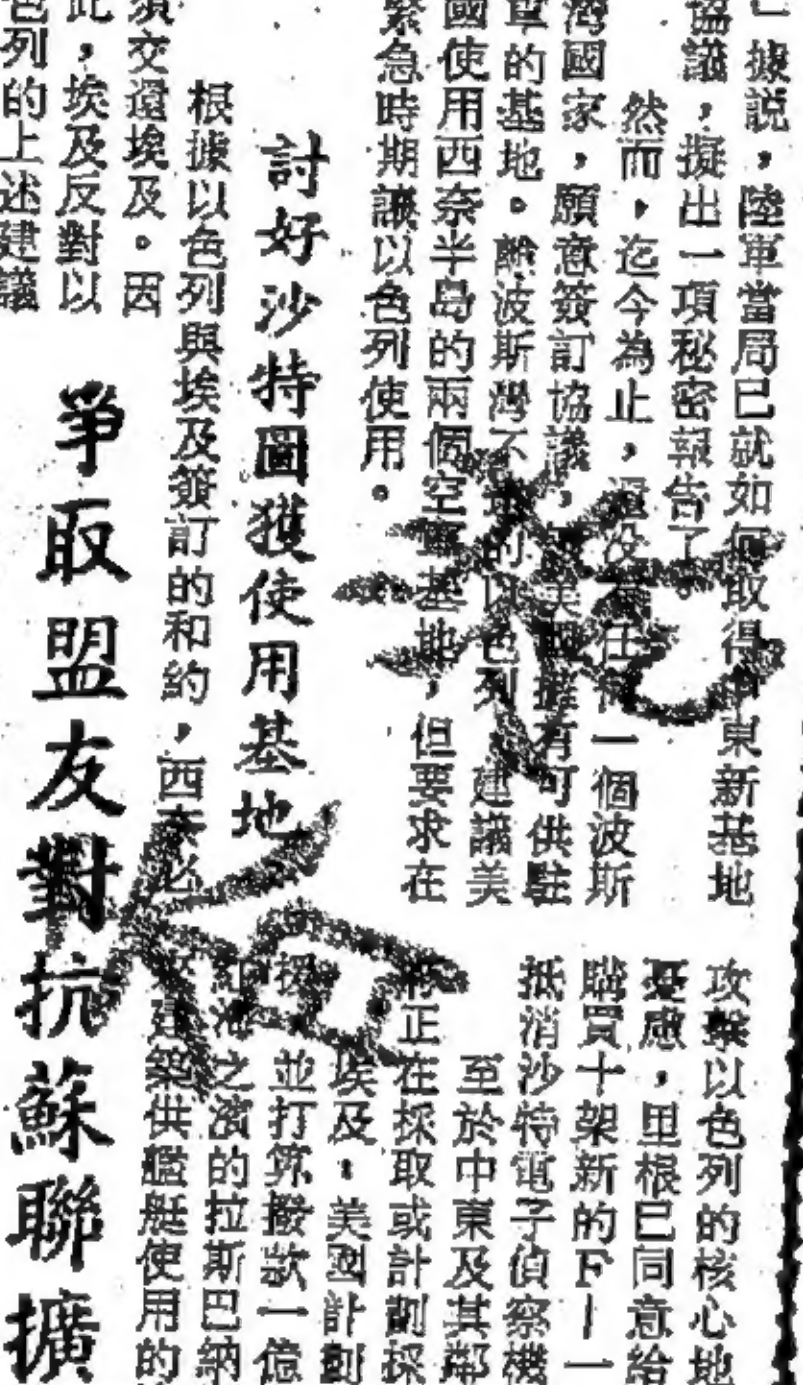 」據說，陸軍當局已就如何取得中東新基地
協議，擬出一項秘密報告了。
然而，迄今為止，還沒有任何一個波斯
灣國家，願意簽訂協議，美國擁有可供駐
軍的基地。離波斯灣不遠的以色列建議美
國使用西奈半島的兩個空軍基地，但要求在
緊急時期讓以色列使用。
討好沙特圖獲使用基地
根據以色列與埃及簽訂的和約，西奈必
須交還埃及。因
此，埃及反對以
色列的上述建議
爭取盟友對抗蘇聯擴
攻擊以色列的核心地
憂慮，里根已同意給
購買十架新的F—一
抵消沙特電子偵察機
至於中東及其鄰
正在採取或計劃採
埃及：美國計劃
援並打算撥款一億
紅海之濱的拉斯巴納
建築供艦艇使用的